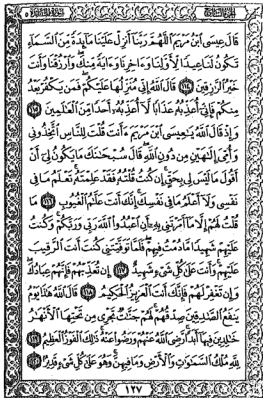 قَالَ عِيسَى ابْنُ مَرْيَمَ اللَّهُمَّ رَبَّنَا أَنزِلْ عَلَيْنَا مَائِدَةً مِّنَ السَّمَاءِ
تَكُونُ لَنَا عِيدًا لِّأَوَّلِنَا وَءَاخِرِنَا وَءَايَةً مِّنكَ وَارْزُقْنَا وَأَنتَ
خَيْرُ الرَّازِقِينَ ١١٤ قَالَ اللَّهُ إِنِّي مُنَزِّلُهَا عَلَيْكُمْ فَمَن يَكْفُرْ بَعْدُ
مِنكُمْ فَإِنِّي أُعَذِّبُهُ عَذَابًا لَّا أُعَذِّبُهُ أَحَدًا مِّنَ الْعَالَمِينَ ١١٥
وَإِذْ قَالَ اللَّهُ يَٰعِيسَى ابْنَ مَرْيَمَ ءَأَنتَ قُلْتَ لِلنَّاسِ اتَّخِذُونِي
وَأُمِّيَ إِلَٰهَيْنِ مِن دُونِ اللَّهِ قَالَ سُبْحَٰنَكَ مَا يَكُونُ لِي أَنْ
أَقُولَ مَا لَيْسَ لِي بِحَقٍّ إِن كُنتُ قُلْتُهُ فَقَدْ عَلِمْتَهُ تَعْلَمُ مَا فِي
نَفْسِي وَلَا أَعْلَمُ مَا فِي نَفْسِكَ إِنَّكَ أَنتَ عَلَّٰمُ الْغُيُوبِ ١١٦ مَا
قُلْتُ لَهُمْ إِلَّا مَا أَمَرْتَنِي بِهِ أَنِ اعْبُدُوا اللَّهَ رَبِّي وَرَبَّكُمْ وَكُنتُ
عَلَيْهِمْ شَهِيدًا مَّا دُمْتُ فِيهِمْ فَلَمَّا تَوَفَّيْتَنِي كُنتَ أَنتَ الرَّقِيبَ
عَلَيْهِمْ وَأَنتَ عَلَىٰ كُلِّ شَيْءٍ شَهِيدٌ ١١٧ إِن تُعَذِّبْهُمْ فَإِنَّهُمْ عِبَادُكَ
وَإِن تَغْفِرْ لَهُمْ فَإِنَّكَ أَنتَ الْعَزِيزُ الْحَكِيمُ ١١٨ قَالَ اللَّهُ هَٰذَا يَوْمُ
يَنفَعُ الصَّٰدِقِينَ صِدْقُهُمْ لَهُمْ جَنَّٰتٌ تَجْرِي مِن تَحْتِهَا الْأَنْهَٰرُ
خَٰلِدِينَ فِيهَا أَبَدًا رَّضِيَ اللَّهُ عَنْهُمْ وَرَضُوا عَنْهُ ذَٰلِكَ الْفَوْزُ الْعَظِيمُ ١١٩
لِلَّهِ مُلْكُ السَّمَٰوَٰتِ وَالْأَرْضِ وَمَا فِيهِنَّ وَهُوَ عَلَىٰ كُلِّ شَيْءٍ قَدِيرٌ ١٢٠
١٢٧